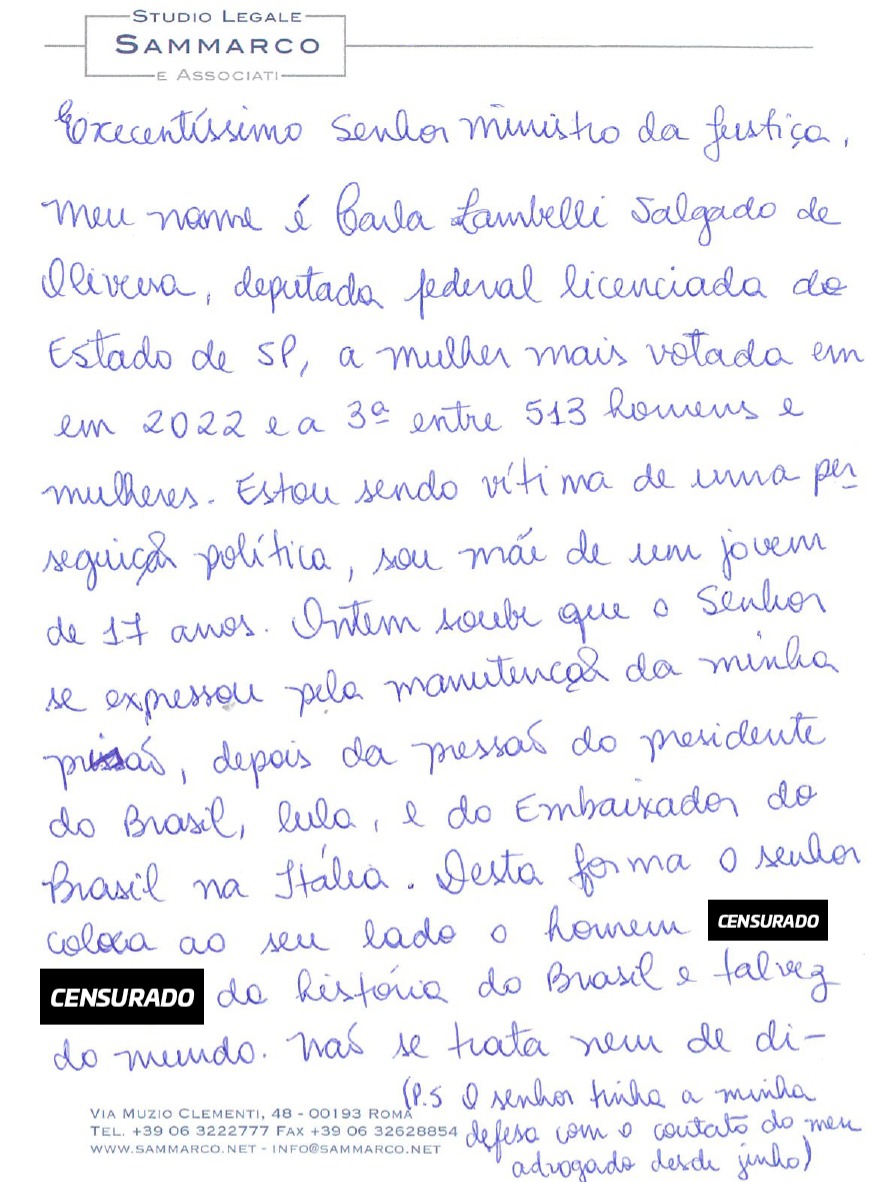 STUDIO LEGALE
SAMMARCO
E ASSOCIATI
Execentíssimo Senhor ministro da justiça,
meu nome é Carla Zambelli Salgado de
Oliveira, deputada federal licenciada do
Estado de SP, a mulher mais votada em
em 2022 e a 3ª entre 513 homens e
mulheres. Estou sendo vítima de uma per
seguição política, sou mãe de um jovem
de 17 anos. Ontem soube que o Senhor
se expressou pela manutenção da minha
prisão, depois da pressão do presidente
do Brasil, lula, e do Embaixador do
Brasil na Itália. Desta forma o senhor
coloca ao seu lado o homem CENSURADO
CENSURADO da história do Brasil e talvez
do mundo. Não se trata nem de di-
(P.S O senhor tinha a minha
defesa com o contato do meu
advogado desde junho)
VIA MUZIO CLEMENTI, 48 - 00193 ROMA
TEL. +39 06 3222777 FAX +39 06 32628854
WWW.SAMMARCO.NET - INFO@SAMMARCO.NET